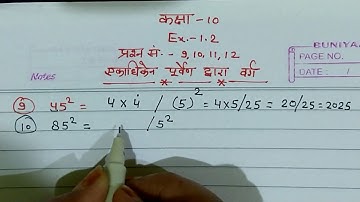 कक्षा - 10
Ex. - 1.2
प्रश्न सं. - 9, 10, 11, 12
एकाधिकेन पूर्वेण द्वारा वर्ग
BUNIYA
PAGE NO.
DATE: /
Notes
⑨ 45² = 4 × 4̇ / (5)² = 4×5/25 = 20/25 = 2025
⑩ 85² = / 5²